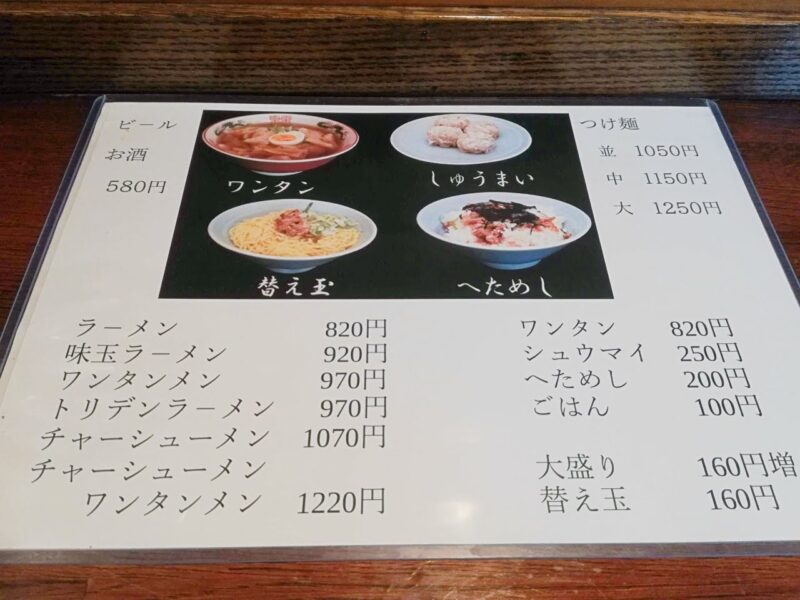 ビール
お酒
580円
ワンタン
しゅうまい
替え玉
へためし
つけ麺
並 1050円
中 1150円
大 1250円
ラーメン 820円
味玉ラーメン 920円
ワンタンメン 970円
トリデンラーメン 970円
チャーシューメン 1070円
チャーシューメン
ワンタンメン 1220円
ワンタン 820円
シュウマイ 250円
へためし 200円
ごはん 100円
大盛り 160円増
替え玉 160円